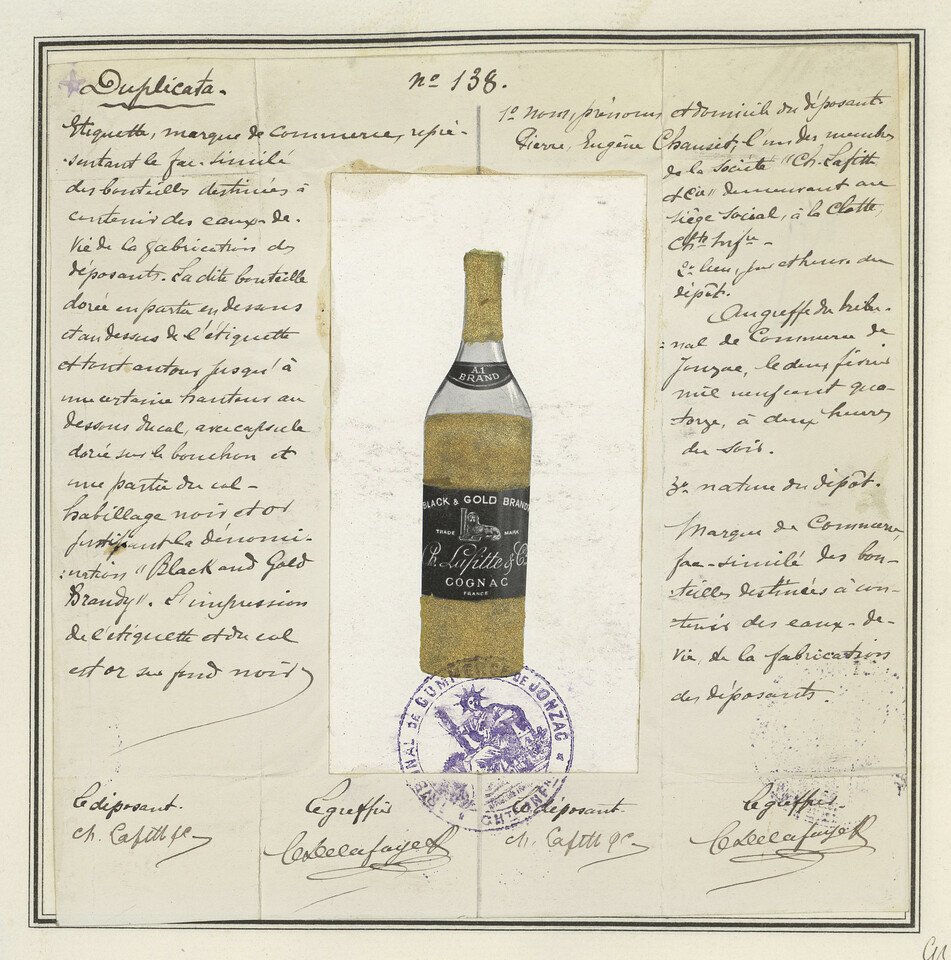 Duplicata.
nº 138.
Etiquette, marque de commerce, repré-
-sentant le fac-similé
des bouteilles destinées à
contenir des eaux-de-
Vie de la fabrication des
déposants. La dite bouteille
dorée en partie en dessous
et au dessus de l'étiquette
et tout autour jusqu'à
une certaine hauteur au
dessous du col, avec capsule
dorée sur le bouchon et
une partie du col -
habillage noir et or
justifiant la dénomi-
:nation "Black and Gold
Brandy". L'impression
de l'étiquette et du col
est or sur fond noir
1º noms, prénoms et domicile du déposant
Pierre, Eugène Chauset, l'un des membres
de la Société "Ch. Lafitte
et Cie" demeurant au
siège social, à la Clotte,
Chte Infre -
2º lieu, jour et heure du
dépôt.
Au greffe du tribu-
:nal de Commerce de
Jonzac, le deux février
mil neuf cent qua-
torze, à deux heures
du soir.
3º nature du dépôt.
Marque de Commerce,
fac-similé des bou-
:teilles destinées à con-
-tenir des eaux-de-
vie, de la fabrication
des déposants.
A.1
BRAND
BLACK & GOLD BRANDY
TRADE MARK
Ch. Lafitte & Co
COGNAC
FRANCE
TRIBUNAL DE COMMERCE DE JONZAC
CHTE INFRE
le déposant.
Ch. Lafitte & Cie
le greffier
le déposant
Ch. Lafitte & Cie
le greffier